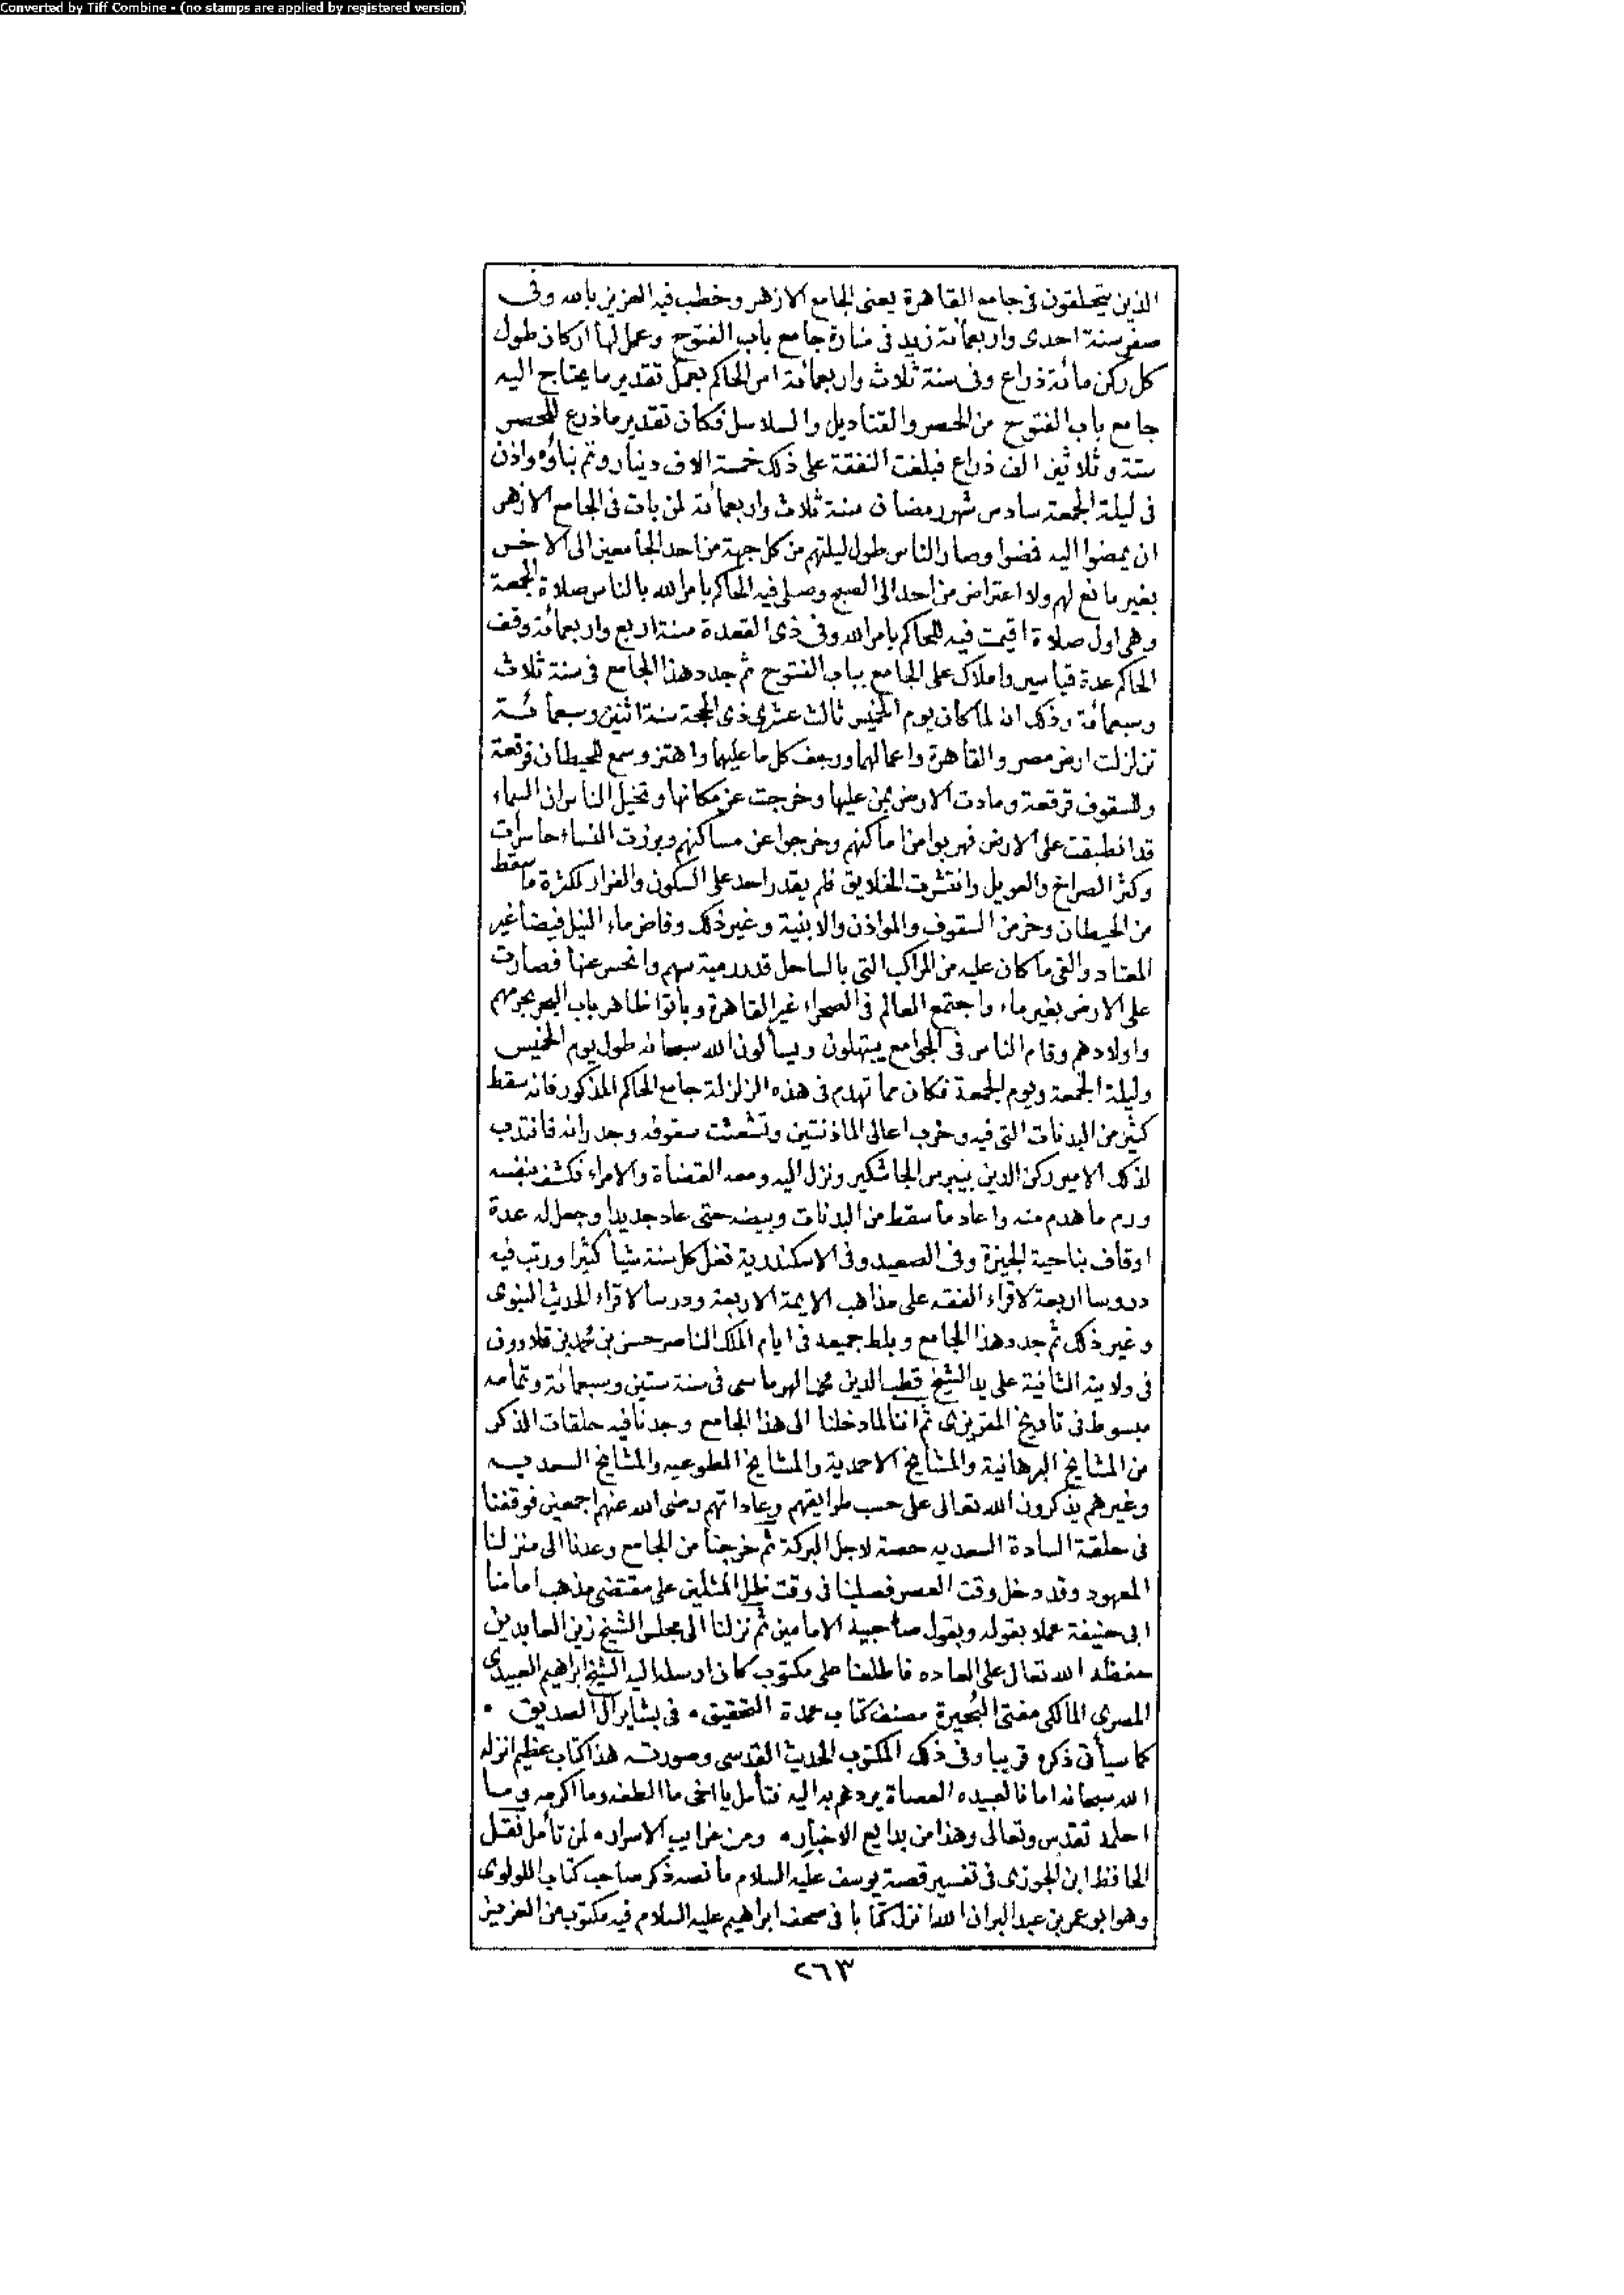 Converted by Tiff Combine - (no stamps are applied by registered version)
الذين يتحلقون فى جامع القاهرة يعنى الجامع الازهر وخطب فيه العزيز بالله وفى
صفر سنة احدى واربعمائة زيد فى منارة جامع باب الفتوح وعمل لها اركان طول
كل ركن مائة ذراع وفى سنة ثلاث واربعمائة امر الحاكم بعمل تقدير ما يحتاج اليه
جامع باب الفتوح من الحصر والقناديل والسلاسل فكان تقدير ما ذرع للحصر
ستة وثلاثين الف ذراع فبلغت النفقة على ذلك خمسة الاف دينار وتم بناؤه واذن
فى ليلة الجمعة سادس شهر رمضان سنة ثلاث واربعمائة لمن بات فى الجامع الازهر
ان يمضوا اليه فمضوا وصار الناس طول ليلتهم من كل جهة من احد الجامعين الى الاخر
بغير مانع لهم ولا اعتراض من احد الى الصبح وصلى فيه الحاكم بامر الله بالناس صلاة الجمعة
وهى اول صلاة اقيمت فيه للحاكم بامر الله وفى ذى القعدة سنة اربع واربعمائة وقف
الحاكم عدة قياسير واملاك على الجامع بباب الفتوح ثم جدد هذا الجامع فى سنة ثلاث
وسبعمائة وذلك انه لما كان يوم الخميس ثالث عشرى ذى الحجة سنة اثنين وسبعمائة
تزلزلت ارض مصر والقاهرة واعمالها ورجف كل ما عليها واهتز وسمع للحيطان قرقعة
وللسقوف قرقعة ومادت الارض بمن عليها وخرجت عن مكانها وتخيل الناس ان السماء
قد انطبقت على الارض فهربوا من اماكنهم وخرجوا عن مساكنهم وبرزت النساء حاسرات
وكثر الصراخ والعويل وانتشرت الخلايق فلم يقدر احد على السكون والفرار لكثرة ما سقط
من الحيطان وخر من السقوف والمواذن والابنية وغير ذلك وفاض ماء النيل فيضا غير
المعتاد والقى ما كان عليه من المراكب التى بالساحل قدر رمية سهم وانحسر عنها فصارت
على الارض بغير ماء واجتمع العالم فى الصحراء غير القاهرة وباتوا ظاهر باب البحر بحرمهم
واولادهم وقام الناس فى الجوامع يبتهلون ويسألون الله سبحانه طول يوم الخميس
وليلة الجمعة ويوم الجمعة فكان مما تهدم فى هذه الزلزلة جامع الحاكم المذكور فانه سقط
كثير من البدنات التى فيه وخرب اعالى الماذنتين وتشعثت سقوفه وجدرانه فانتدب
لذلك الامير ركن الدين بيبرس الجاشنكير ونزل اليه ومعه القضاة والامراء فكشفه بنفسه
ورم ما هدم منه واعاد ما سقط من البدنات وبيضه حتى عاد جديدا وجعل له عدة
اوقاف بناحية الجيزة وفى الصعيد وفى الاسكندرية تغل كل سنة شيا كثيرا ورتب فيه
دروسا اربعة لاقراء الفقه على مذاهب الايمة الاربعة ودرسا لاقراء الحديث النبوى
وغير ذلك ثم جدد هذا الجامع وبلط جميعه فى ايام الملك الناصر حسن بن محمد بن قلاوون
فى ولايته الثانية على يد الشيخ قطب الدين محمد الهرماسى فى سنة ستين وسبعمائة وتمامه
مبسوط فى تاريخ المقريزى ثم اننا لما دخلنا الى هذا الجامع وجدنا فيه حلقات الذكر
من المشايخ البرهانية والمشايخ الاحمدية والمشايخ المطوعيه والمشايخ السعديه
وغيرهم يذكرون الله تعالى على حسب طرايقهم وعاداتهم رضى الله عنهم اجمعين فوقفنا
فى حلقة السادة السعديه حصة لاجل البركة ثم خرجنا من الجامع وعدنا الى منزلنا
المعهود وقد دخل وقت العصر فصلينا فى وقت ظل المثلين على مقتضى مذهب امامنا
ابى حنيفة عملا بقوله وبقول صاحبيه الامامين ثم نزلنا الى مجلس الشيخ زين العابدين
حفظه الله تعالى على العاده فاطلعنا على مكتوب كان ارسله اليه الشيخ ابراهيم العبيدى
المصرى المالكى مفتى البُحيرة مصنف كتاب عمدة التحقيق • فى بشاير آل الصديق •
كما سيأتى ذكره قريبا وفى ذلك المكتوب الحديث القدسى وصورته هذا كتاب عظيم انزله
الله سبحانه امانا لعبيده العصاة يردهم به اليه فتأمل يا اخى ما الطفه وما اكرمه وما
احلمه تقدس وتعالى وهذا من بدايع الاخبار • ومن غرايب الاسرار • لمن تأمل نقل
الحافظ ابن الجوزى فى تفسير قصة يوسف عليه السلام ما نصه ذكر صاحب كتاب اللولوى
وهو ابو عمر بن عبد البر ان الله انزل كتابا فى صحف ابراهيم عليه السلام فيه مكتوب من العزيز
٢٦٣